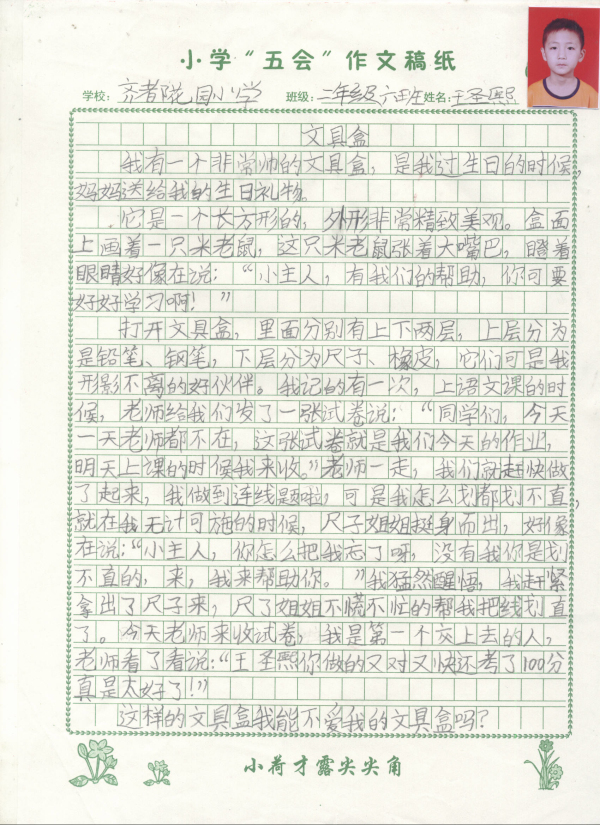 小学“五会”作文稿纸
学校：齐都花园小学 班级：二年级六班 姓名：王圣熙
文具盒
我有一个非常帅的文具盒，是我过生日的时候，
妈妈送给我的生日礼物。
它是一个长方形的，外形非常精致美观。盒面
上画着一只米老鼠，这只米老鼠张着大嘴巴，瞪着
眼睛好像在说：“小主人，有我们的帮助，你可要
好好学习啊！”
打开文具盒，里面分别有上下两层，上层分为
是铅笔、钢笔，下层分为尺子、橡皮，它们可是我
形影不离的好伙伴。我记的有一次，上语文课的时
候，老师给我们发了一张试卷说：“同学们，今天
一天老师都不在，这张试卷就是我们今天的作业，
明天上课的时候我来收。”老师一走，我们就赶快做
了起来，我做到连线题啦，可是我怎么划都划不直，
就在我无计可施的时候，尺子姐姐挺身而出，好像
在说：“小主人，你怎么把我忘了呀，没有我你是划
不直的，来，我来帮助你。”我猛然醒悟，我赶紧
拿出了尺子来，尺了姐姐不慌不忙的帮我把线划直
了。今天老师来收试卷，我是第一个交上去的人，
老师看了看说：“王圣熙你做的又对又快还考了100分
真是太好了！”
这样的文具盒我能不爱我的文具盒吗？
小荷才露尖尖角